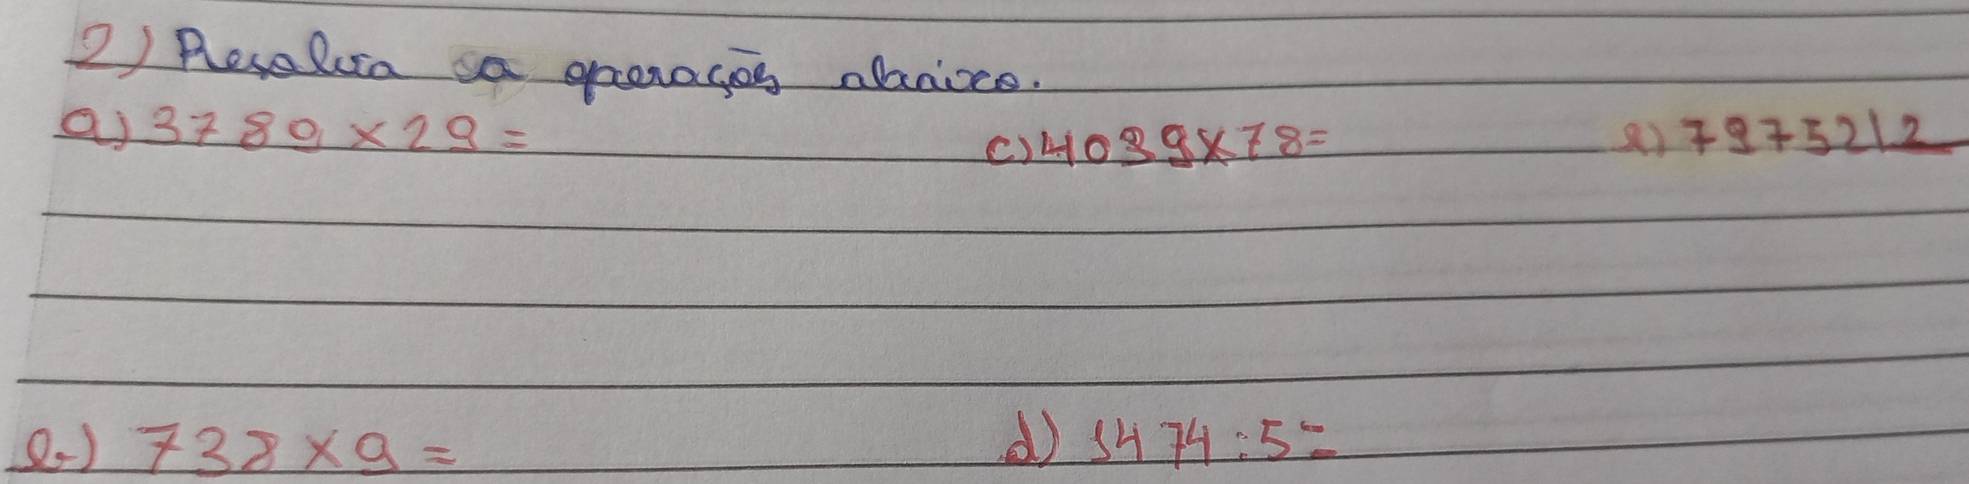 2) Resolva sa operações abaixo.
a) 3789 x 29 = c) 4039 x 78 = e) 797521 2
b) 738 x 9 = d) 1474 : 5 =